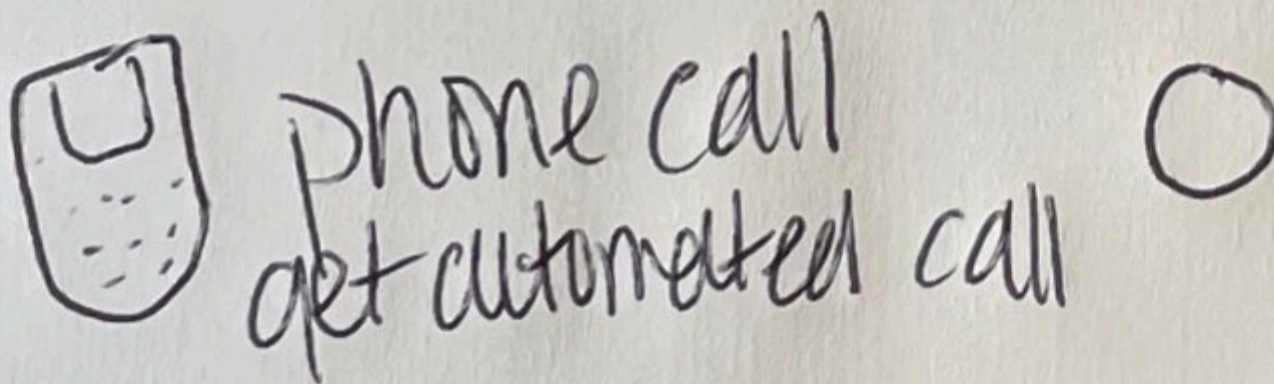 phone call
get automated call